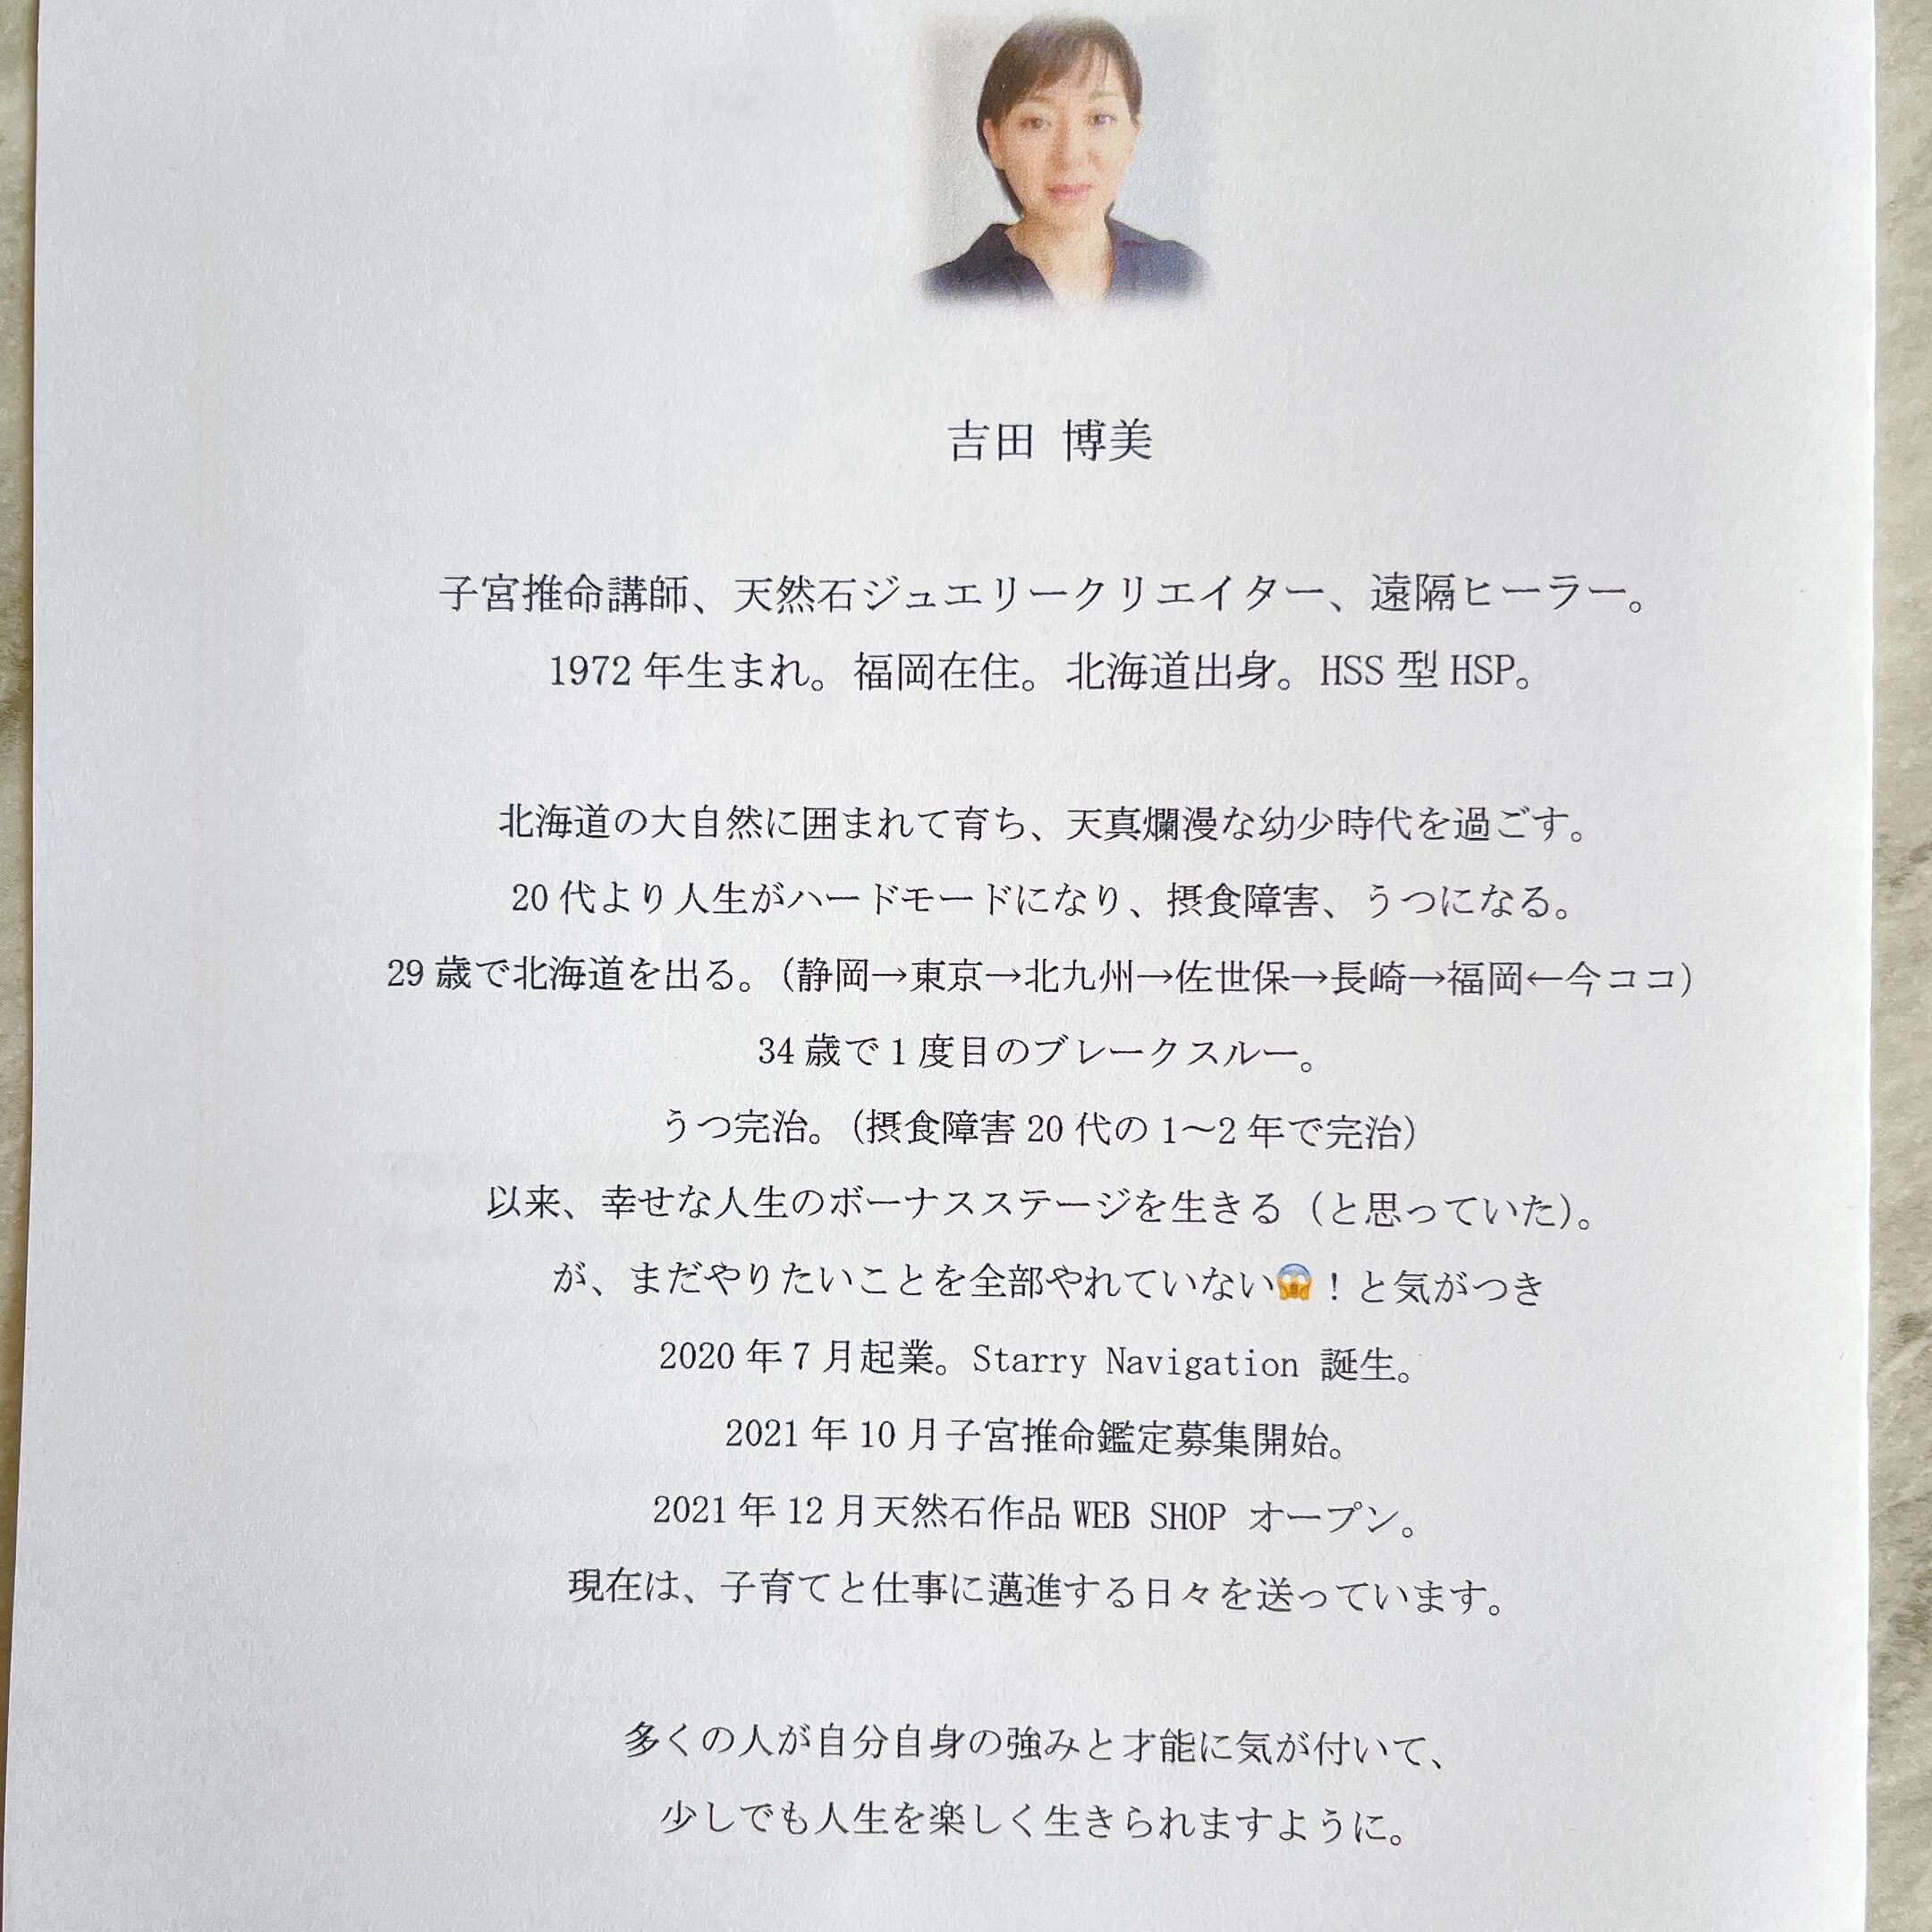 吉田 博美
子宮推命講師、天然石ジュエリークリエイター、遠隔ヒーラー。
1972年生まれ。福岡在住。北海道出身。HSS型HSP。
北海道の大自然に囲まれて育ち、天真爛漫な幼少時代を過ごす。
20代より人生がハードモードになり、摂食障害、うつになる。
29歳で北海道を出る。（静岡→東京→北九州→佐世保→長崎→福岡←今ココ）
34歳で1度目のブレークスルー。
うつ完治。（摂食障害20代の1〜2年で完治）
以来、幸せな人生のボーナスステージを生きる（と思っていた）。
が、まだやりたいことを全部やれていない😱！と気がつき
2020年7月起業。Starry Navigation 誕生。
2021年10月子宮推命鑑定募集開始。
2021年12月天然石作品WEB SHOP オープン。
現在は、子育てと仕事に邁進する日々を送っています。
多くの人が自分自身の強みと才能に気が付いて、
少しでも人生を楽しく生きられますように。